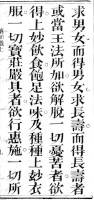 求男女而得男女求長壽而得長壽者
或當王法所加欲解脫一切憂苦者欲
得上妙飲食飽足法味及種種上妙衣
服一切寶莊嚴具者欲行惠施一切所